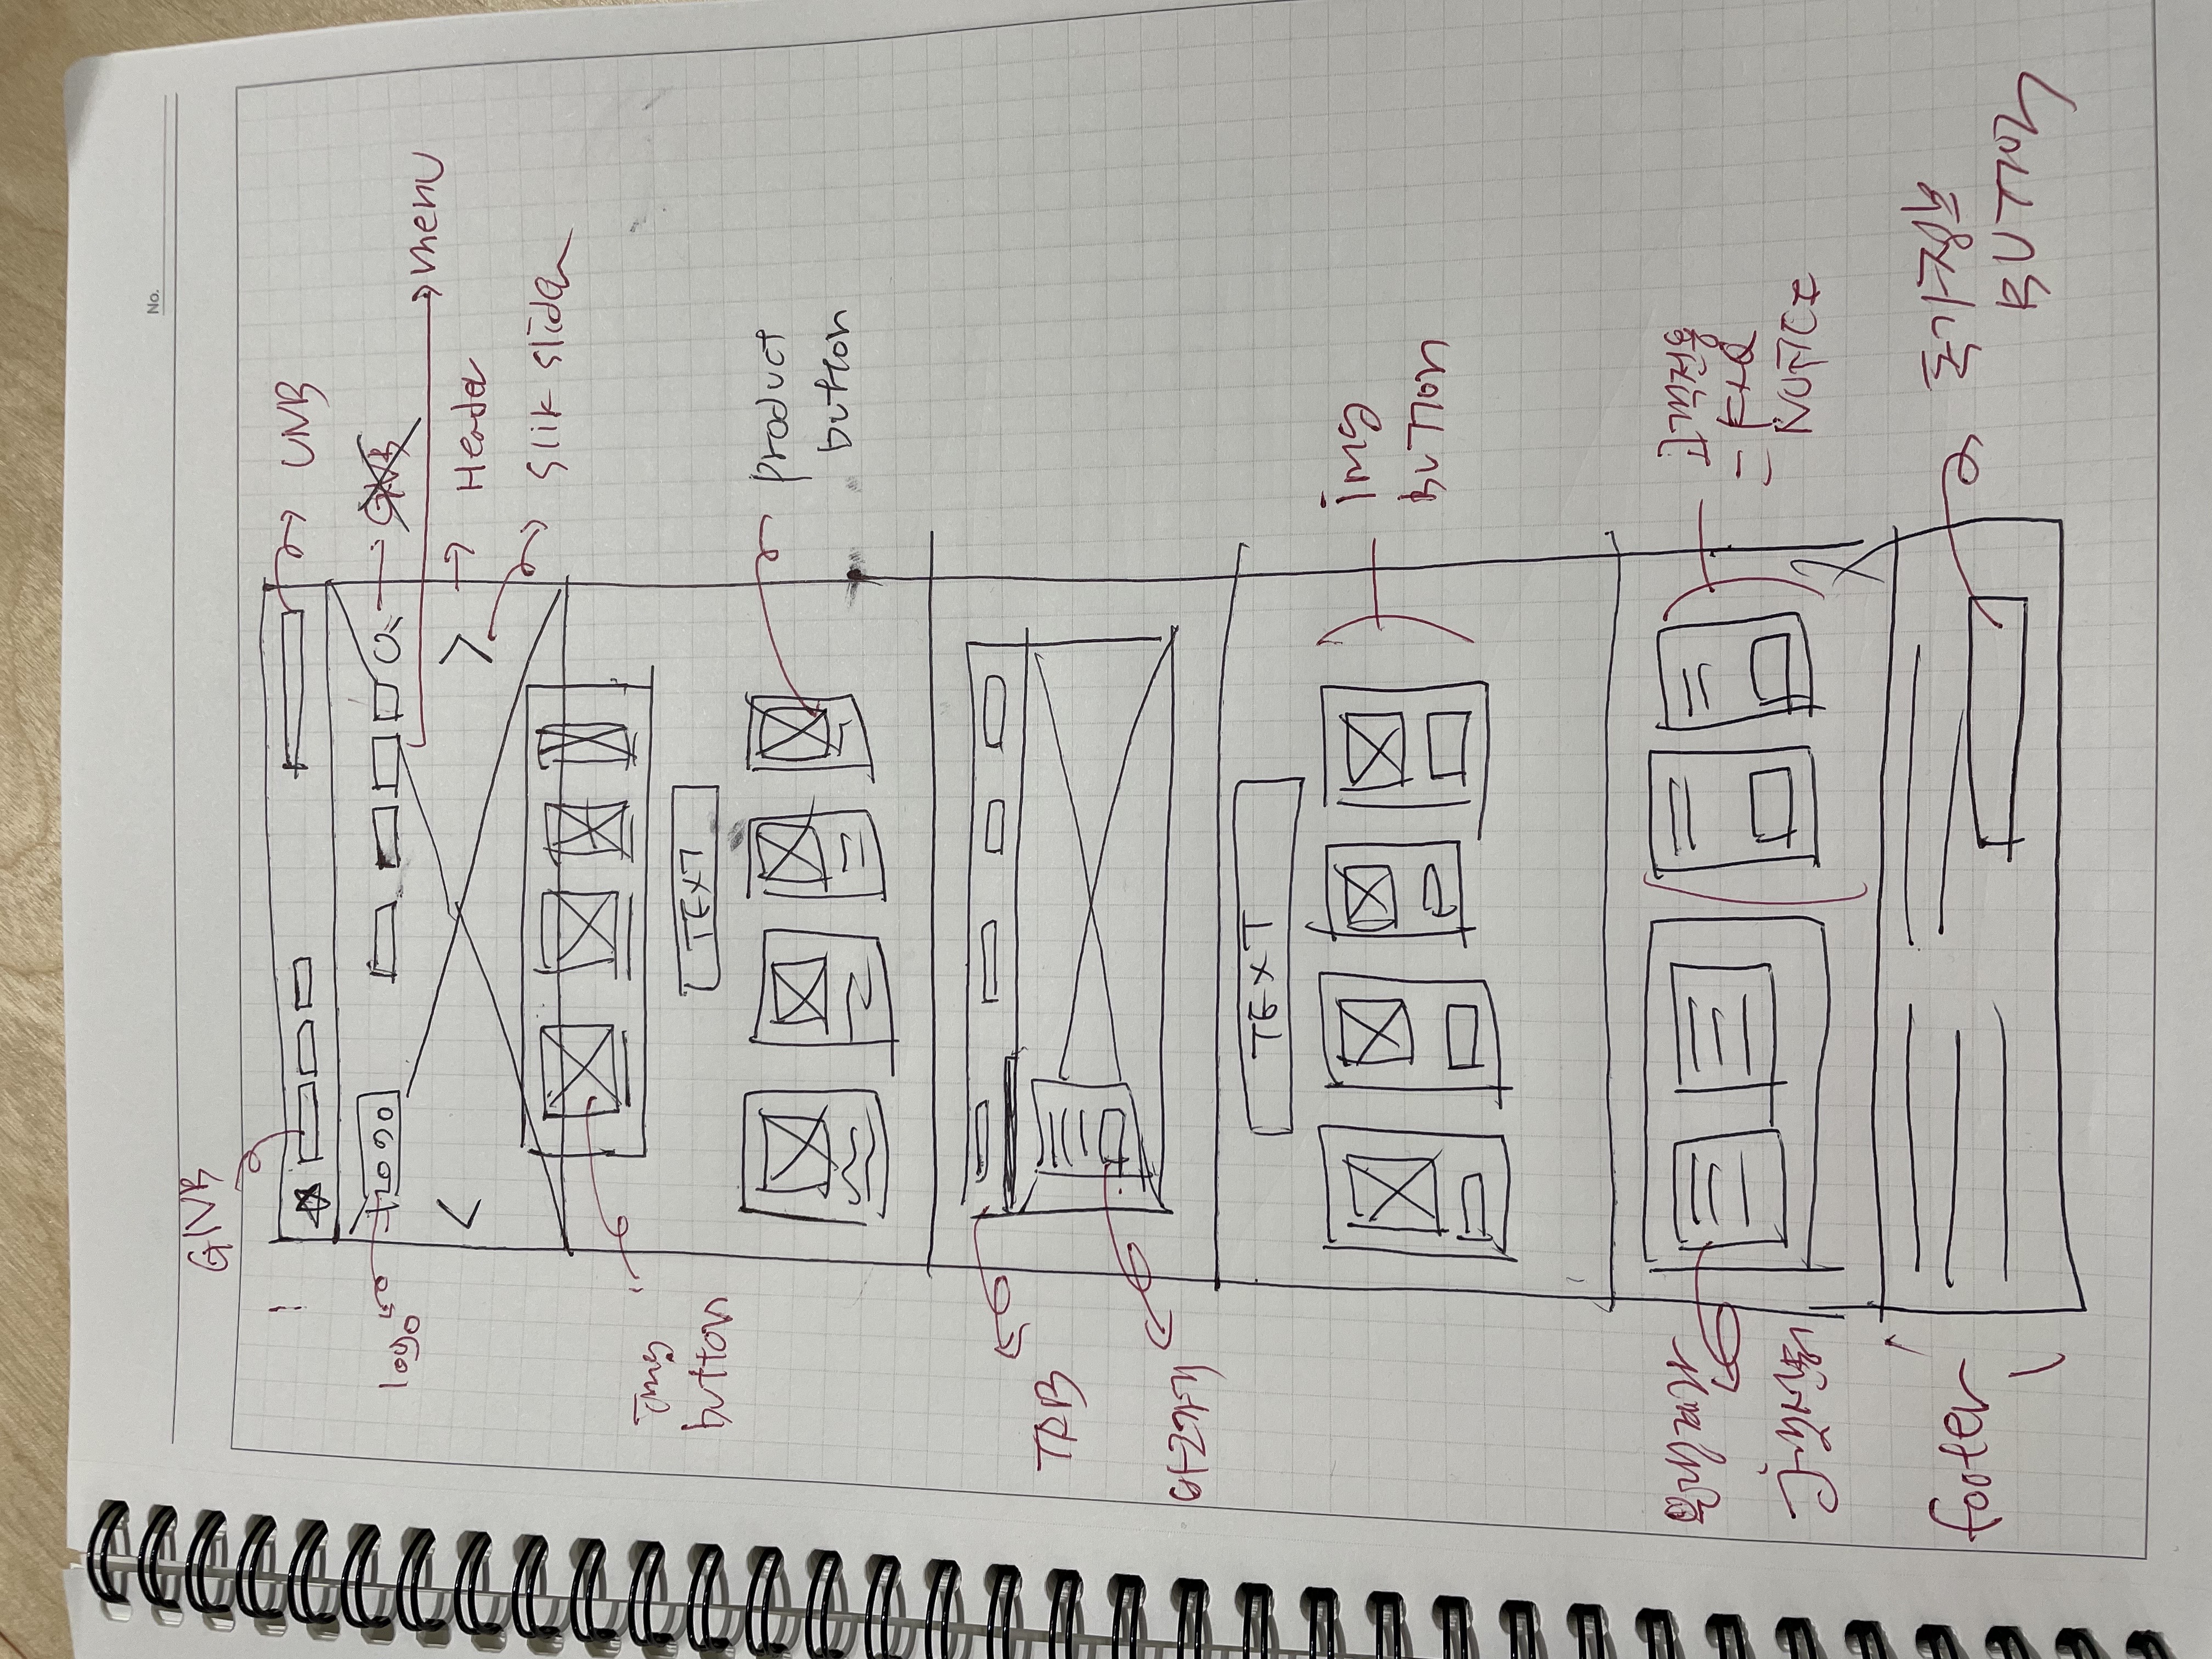 No.
GNB
UNB
logo
LOGO
GNB
menu
Header
Slik slider
img
button
TEXT
product
button
바로가기
TEXT
img
BUTTON
고객전용
= FAQ
NOTICE
footer
BUTTON